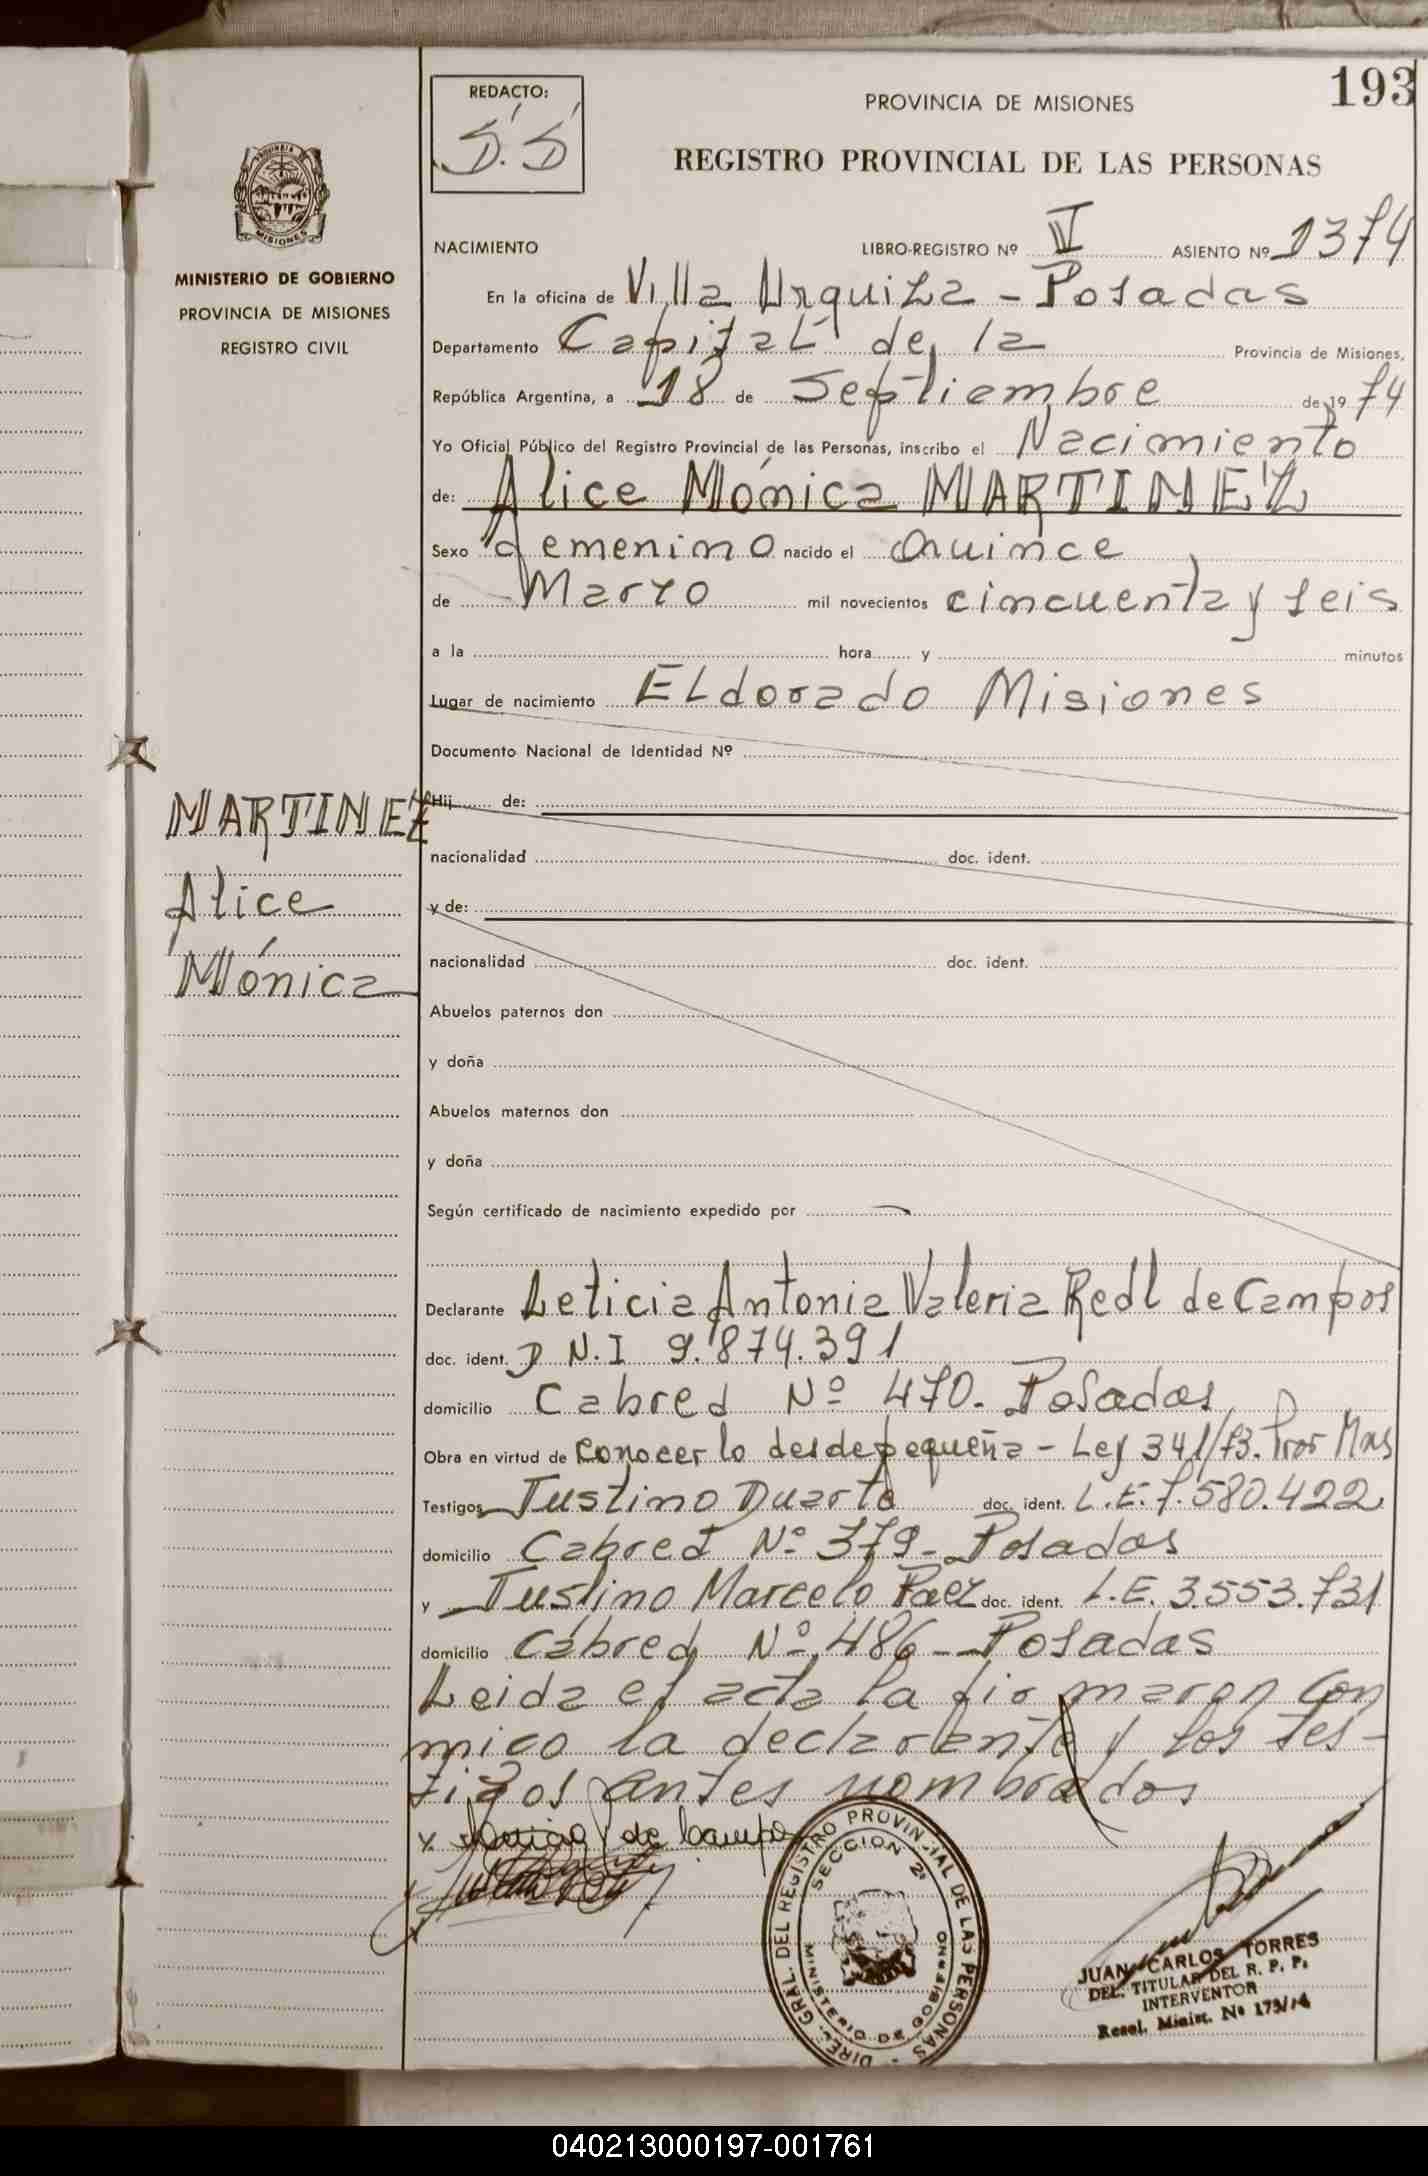 193
REDACTO:
S.S
PROVINCIA DE MISIONES
REGISTRO PROVINCIAL DE LAS PERSONAS
PROVINCIA DE
MISIONES
MINISTERIO DE GOBIERNO
PROVINCIA DE MISIONES
REGISTRO CIVIL
NACIMIENTO LIBRO-REGISTRO Nº ASIENTO Nº 1374
En la oficina de Villa Urquiza - Posadas
Departamento Capital de la Provincia de Misiones,
República Argentina, a 18 de Septiembre de 19 74
Yo Oficial Público del Registro Provincial de las Personas, inscribo el Nacimiento
de: Alice Mónica MARTINEZ
Sexo femenino nacido el Quince
de Marzo mil novecientos cincuenta y seis
a la hora y minutos
Lugar de nacimiento ELdorado Misiones
Documento Nacional de Identidad Nº
MARTINEZ
Alice
Mónica
Hij de:
nacionalidad doc. ident.
y de:
nacionalidad doc. ident.
Abuelos paternos don
y doña
Abuelos maternos don
y doña
Según certificado de nacimiento expedido por
Declarante Leticia Antonia Valeria Redl de Campos
doc. ident. D N.I 9.874.391
domicilio Cabred Nº 470. Posadas
Obra en virtud de conocerlo desde pequeña - Ley 341/73. Mns
Testigos Justino Duarte doc. ident. L.E. 7.580.422
domicilio Cabred Nº 379 - Posadas
y Justino Marcelo Paez doc. ident. L.E. 3.553.731
domicilio Cabred Nº 486 - Posadas
Leida el acta la firmaron con
migo la declarante y los tes-
tigos antes nombrados
de Campos
DIREC. GRAL. DEL REGISTRO PROVINCIAL DE LAS PERSONAS
SECCION 2ª
MINISTERIO DE GOBIERNO
JUAN CARLOS TORRES
DEL. TITULAR DEL R. P. P.
INTERVENTOR
Resol. Minist. Nº 173/74
040213000197-001761